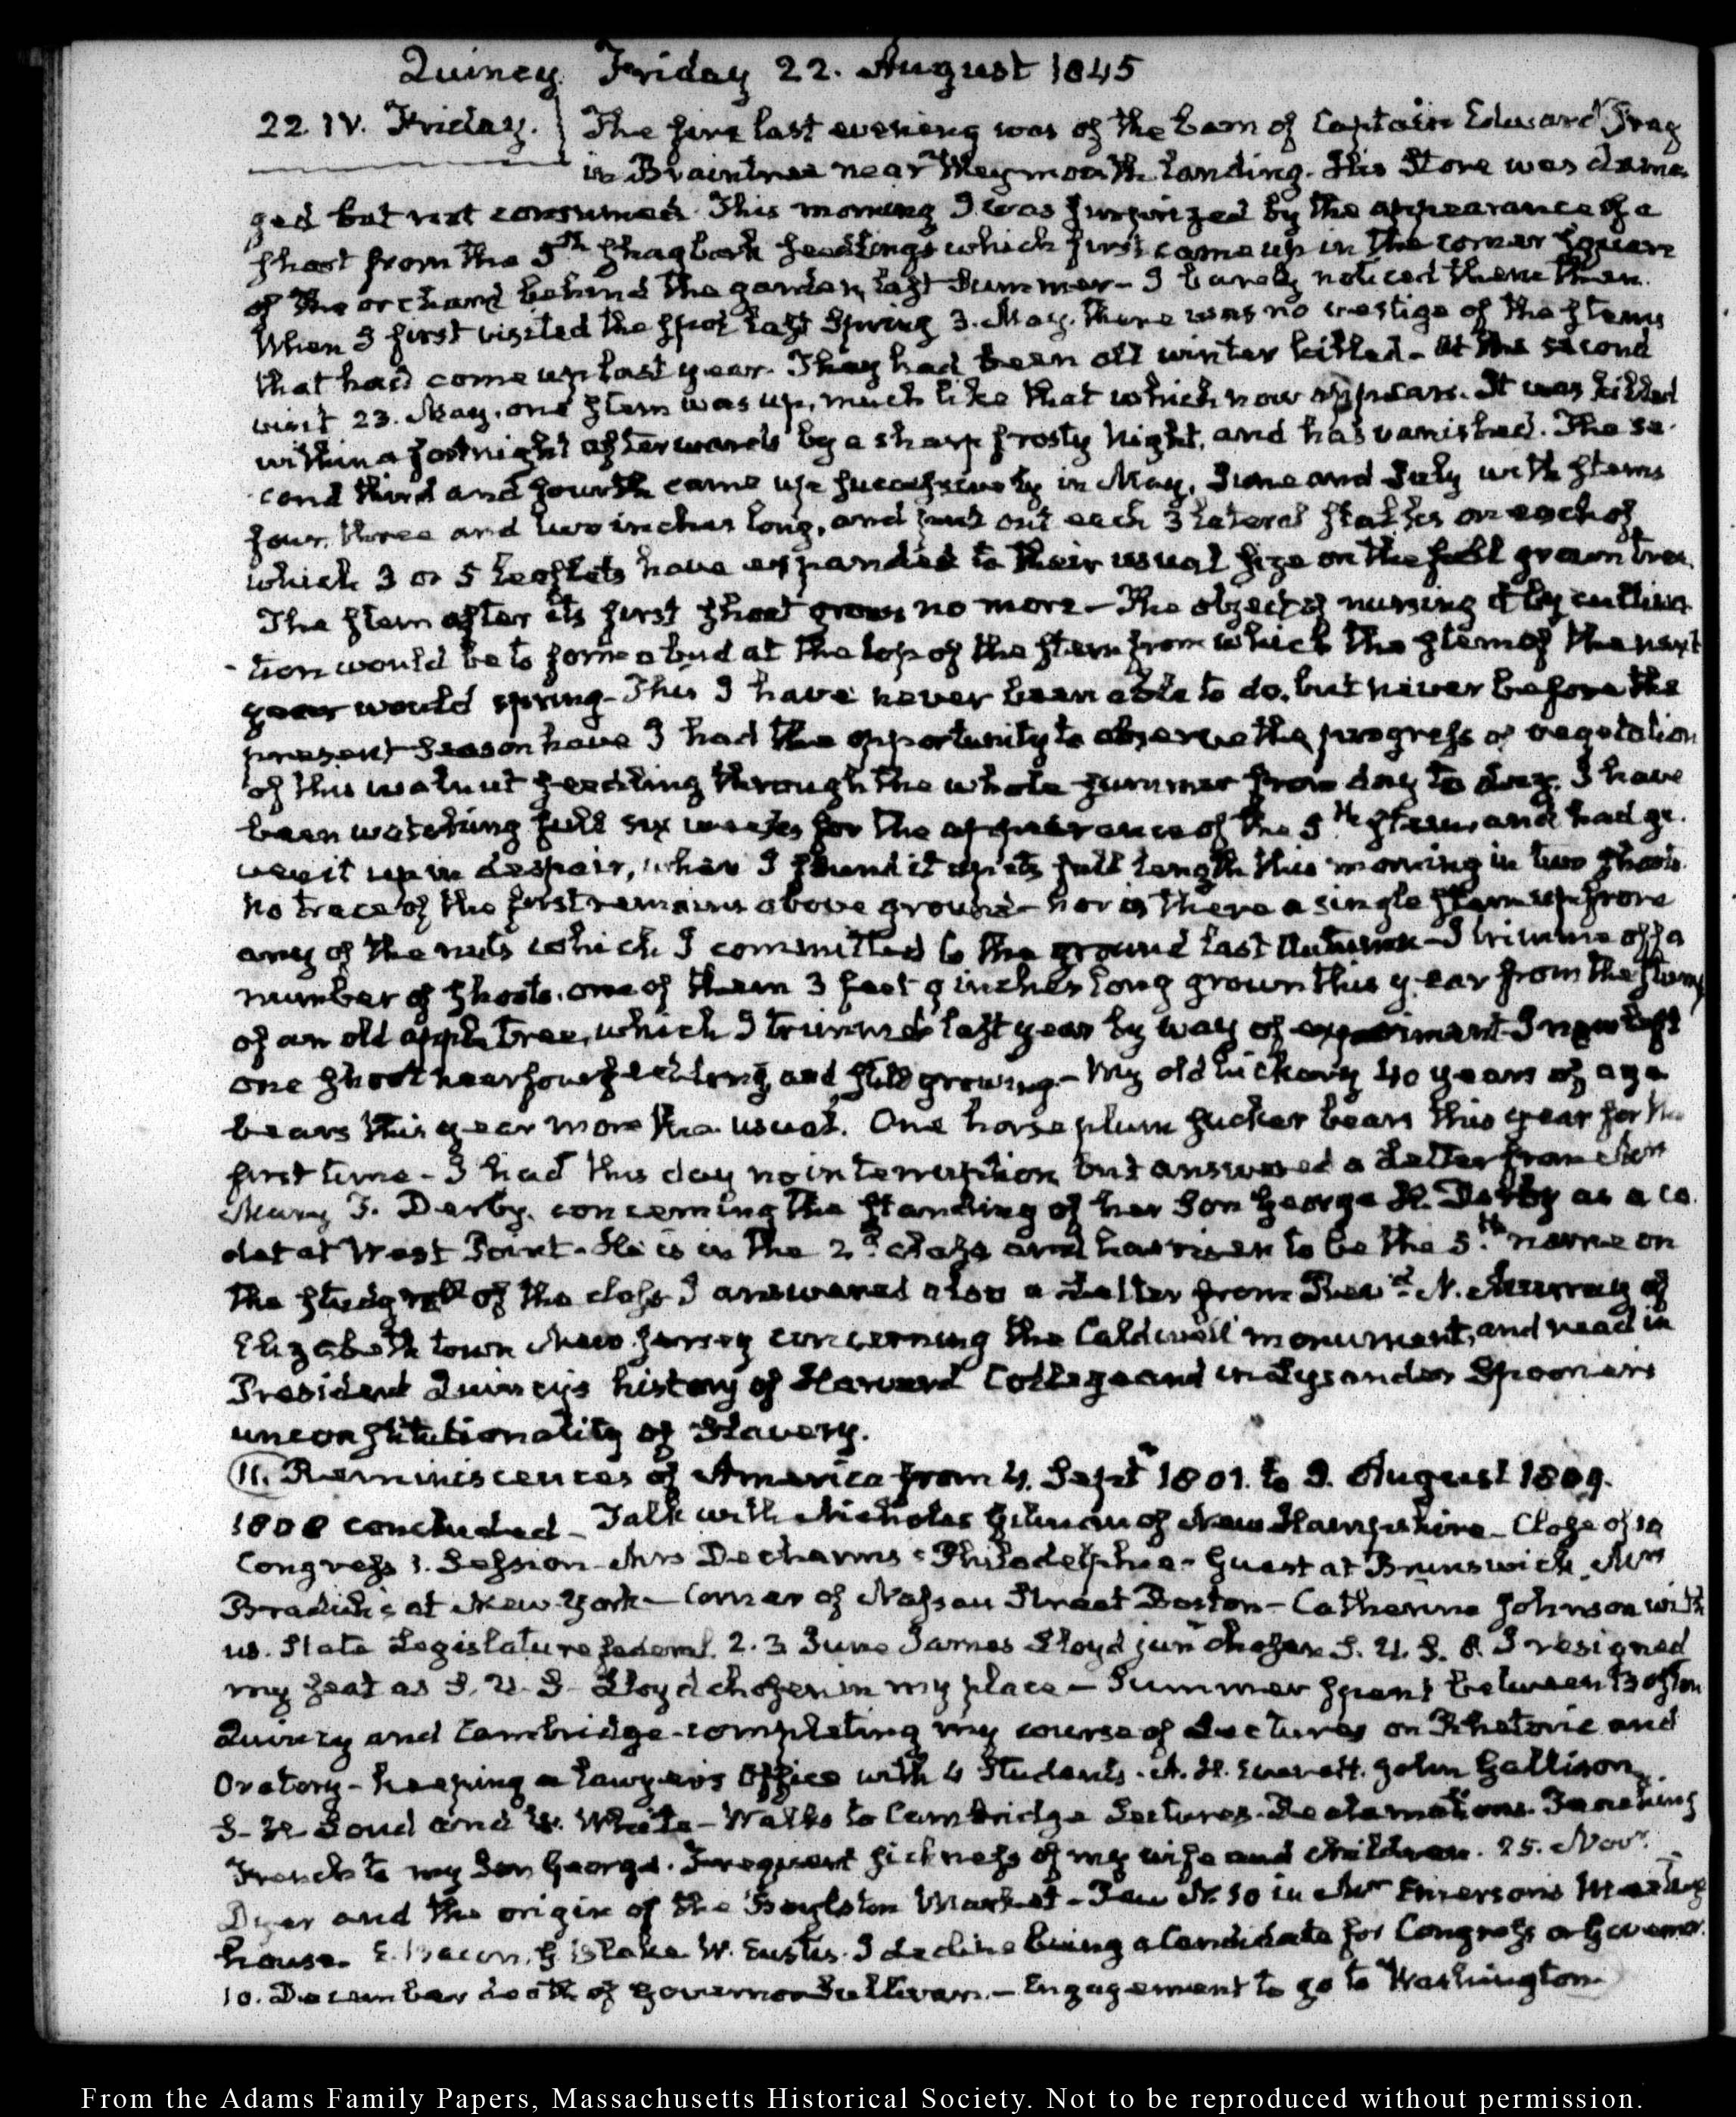 Quincy Friday 22. August 1845
22. IV. Friday. The fire last evening was of the barn of Captain Edward
in Braintree near Weymouth Landing. His Store was dama-
ged but not consumed. This morning I was surprized by the appearance of a
shoot from the 5th shagbark seedlings which first came up in the corner square
of the orchard behind the garden, last Summer - I barely noticed them then.
When I first visited the spot last Spring 3. May. there was no vestige of the stems
that had come up last year. They had been all winter killed - at the second
visit 23. May. one stem was up, much like that which now appears. It was killed
within a fortnight afterwards by a sharp frosty night, and has vanished. The se-
cond third and fourth came up successively in May, June and July with stems
four, three and two inches long, and put out each 3 lateral stalks on each of
which 3 or 5 leaflets have expanded to their usual size on the full grown tree.
The stem after its first shoot grows no more - The object of nursing it by cultiva-
tion would be to form a bud at the top of the stem from which the stem of the next
year would spring - This I have never been able to do, but never before the
present season have I had the opportunity to observe the progress of vegetation
of this walnut seedling through the whole summer from day to day. I have
been watching full six weeks for the appearance of the 5th stem, and had gi-
ven it up in despair, when I found it up its full length this morning in two shoots.
No trace of the first remains above ground - nor is there a single stem up from
any of the nuts which I committed to the ground last Autumn - I trimmed off a
number of shoots, one of them 3 feet 9 inches long grown this year from the stump
of an old apple tree, which I trimmed last year by way of experiment - I now left
one shoot near four feet long and still growing - My old hickory 40 years of age
bears this year more than usual. One horse plum sucker bears this year for the
first time - I had this day no interruption but answered a Letter from Mrs
Mary J. Derby, concerning the standing of her Son George H. Derby as a Ca-
det at West Point - He is in the 2d class and has risen to be the 5th name on
the study roll of the class. I answered also a Letter from Revd N. Murray of
Elizabeth town New Jersey concerning the Caldwell monument, and read in
President Quincy's history of Harvard College and in Lysander Spooner's
unconstitutionality of Slavery.
(11. Reminiscences of America from 4. Septr 1801. to 5. August 1809.
1808 concluded - Talk with Nicholas Gilman of New Hampshire - Close of 10
Congress 1. Session - Mrs Decharms : Philadelphia - Guest at Brunswick, Mrs
at New York - Corner of Nassau Street Boston - Catherine Johnson with
us. State Legislature federal. 2. 3 June James Lloyd junr chosen S. U. S. 8. I resigned
my seat as S. U. S - Lloyd chosen in my place - Summer spent between Boston
Quincy and Cambridge - completing my course of Lectures on Rhetoric and
Oratory - keeping a lawyer's Office with 4 Students - A. H. Everett. John Gallison,
S. K. and W. White - Walks to Cambridge Lectures - Declamations. Teaching
French to my Son George. Frequent sickness of my wife and children. 25. Novr.
Dyer and the origin of the Boylston Market - Pew N. 10 in Mr Emerson's Meeting
house. E. Bacon, G. Blake W. Eustis. I decline being a Candidate for Congress or Governor.
10. December death of Governor Sullivan. - Engagement to go to Washington
From the Adams Family Papers, Massachusetts Historical Society. Not to be reproduced without permission.